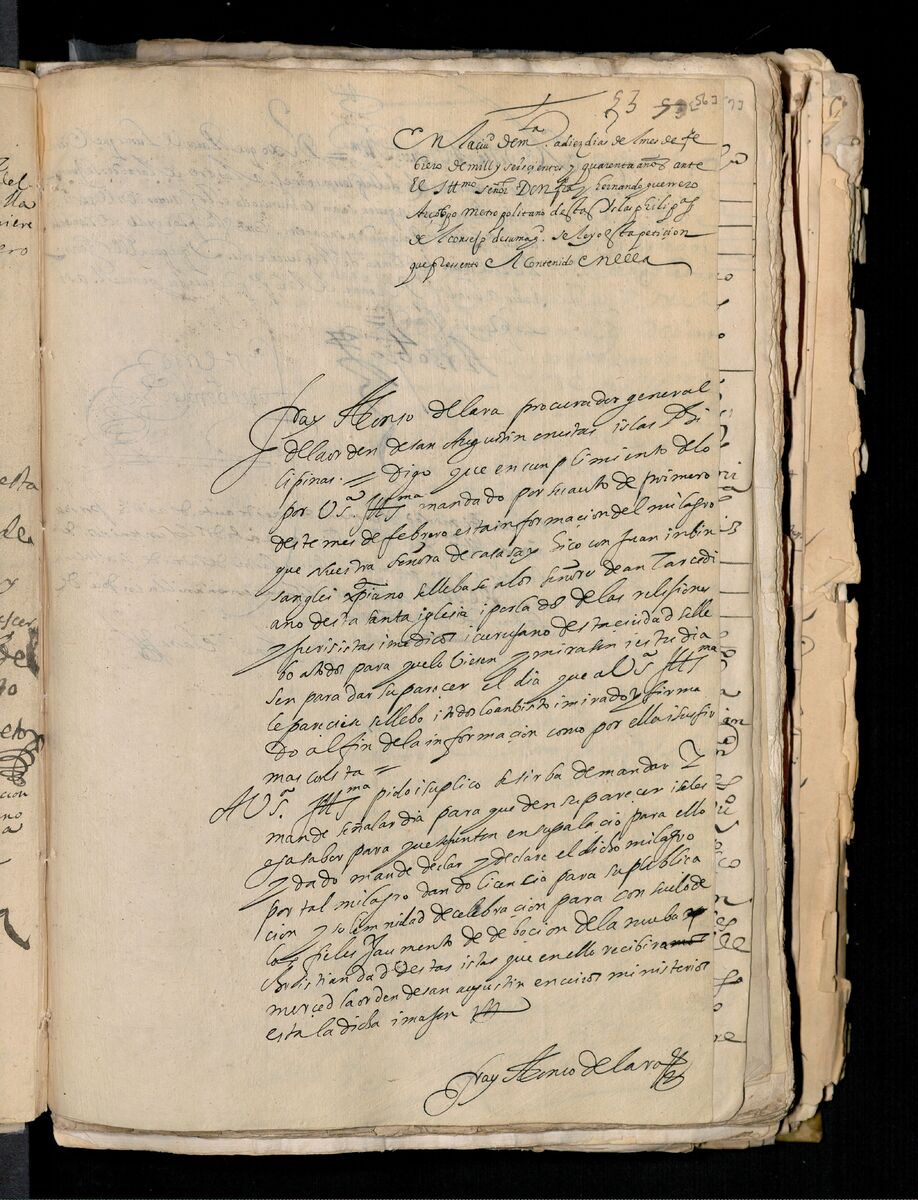 53
En la ciu.d de m.la a diez dias del mes de fe
brero de mill y seisçientos y quarenta años ante
El Ill.mo señor Don fray hernando guerrero
Arçobpo metropolitano destas Yslas philip.as
del conse.o de su mag.d se leyo esta petiçion
que pressento el contenido en ella
fray Alonso de lara procurador general
de la orden de san Augustin en estas islas Phi
lipinas = Digo que en cunplimiento de lo
por Vs.a Ill.ma mandado por su auto de primero
deste mes de febrero esta informacion del milagro
que nuestra señora de casasay hico con Juan inbin
sanglei xpiano se llebase a los señores dean i arcedi
ano desta santa iglesia i perlados de las relisiones
y jurisistas i medicos i curujano desta ciudad se lle
bo a todos para que lo biesen y mirasen i estudia
sen para dar su pareçer el dia que a Vs.a Ill.ma
le pareciese se llebo i todos lo an bisto i mirado y firma
do al fin de la informaçion como por ella i sus fir
mas consta =
A Vs.a Ill.ma pido i suplico se sirba de mandar
mande señalar dia para que den su parecer i se les
aga saber para que se junten en su palacio para ello
y dado mande declar y declare el dicho milagro
por tal milagro dando licencia para su publica
cion y solemnidad de celebraçion para consuelo de
los fieles J aumento de deboçion de la nueba
christiandad destas islas que en ello recibira
merced la orden de san augustin en cuios ministerios
esta la dicha imagen
fray Alonso de lara